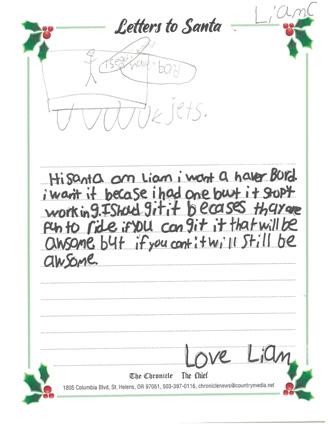 Letters to Santa
Liam C
jets.
Hi Santa am Liam i want a haver Bord.
i want it becase i had one but it stopt
working. I shoud git it becases thay are
fun to ride if you can git it that will be
awsome but if you cant it will still be
awsome.
Love Liam
The Chronicle The Chief
1805 Columbia Blvd, St. Helens, OR 97051, 503-397-0116, chroniclenews@countrymedia.net